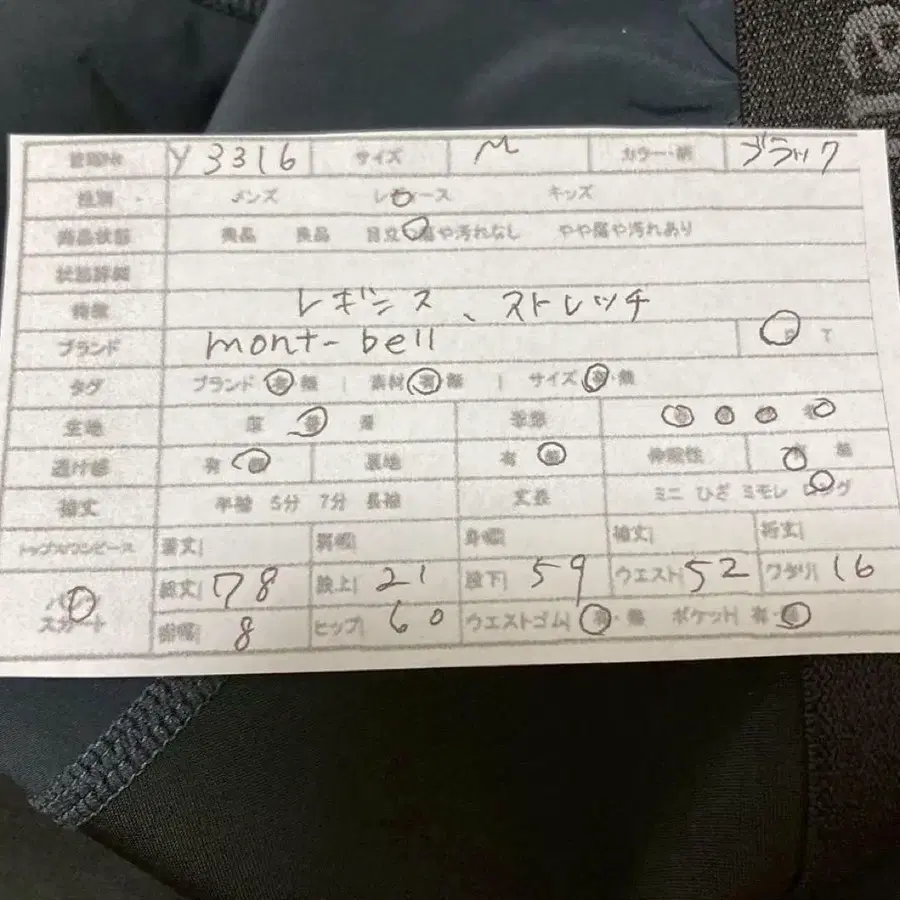 管理No Y3316 サイズ M カラー・柄 ブラック
性別 メンズ レディース キッズ
商品状態 美品 良品 目立つ傷や汚れなし やや傷や汚れあり
状態詳細
特徴 レギンス、ストレッチ
ブランド mont-bell P T
タグ ブランド 有・無 | 素材 有・無 | サイズ 有・無
生地 薄 普 厚 季節
透け感 有 無 裏地 有 無 伸縮性 有 無
袖丈 半袖 5分 7分 長袖 丈感 ミニ ひざ ミモレ ロング
トップス/ワンピース 着丈| 肩幅| 身幅| 袖丈| 裄丈|
パンツ スカート 総丈| 78 股上| 21 股下| 59 ウエスト| 52 ワタリ| 16
裾幅| 8 ヒップ| 60 ウエストゴム| 有・無 ポケット| 有・無